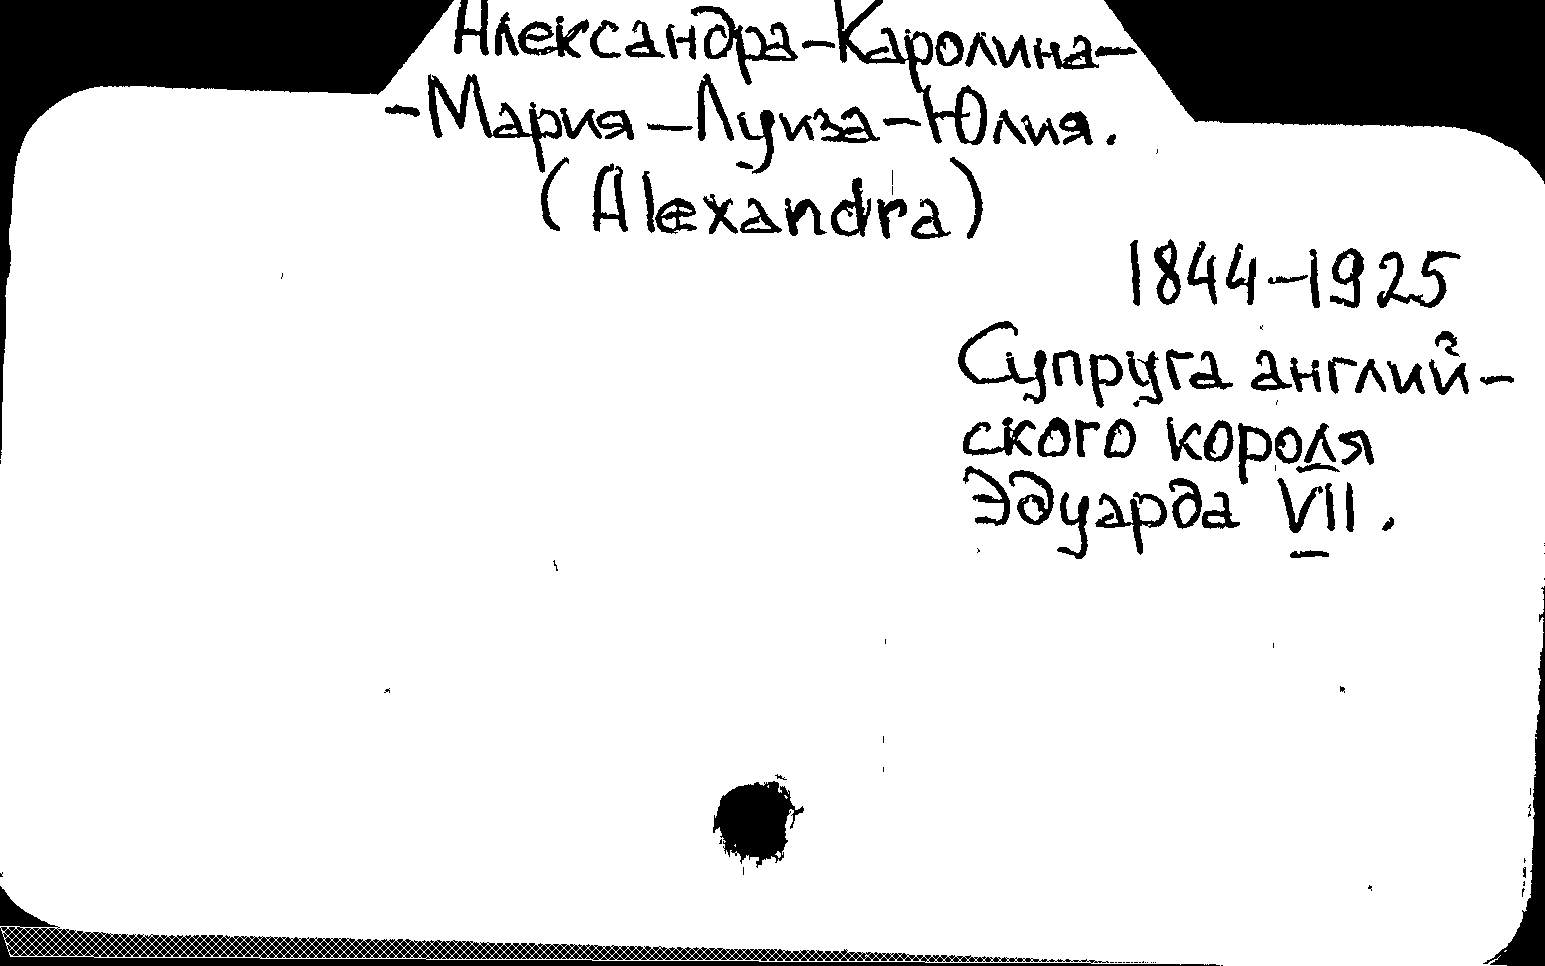 Александра-Каролина-
-Мария-Луиза-Юлия.
(Alexandra)
1844-1925
Супруга англий-
ского короля
Эдуарда VII.